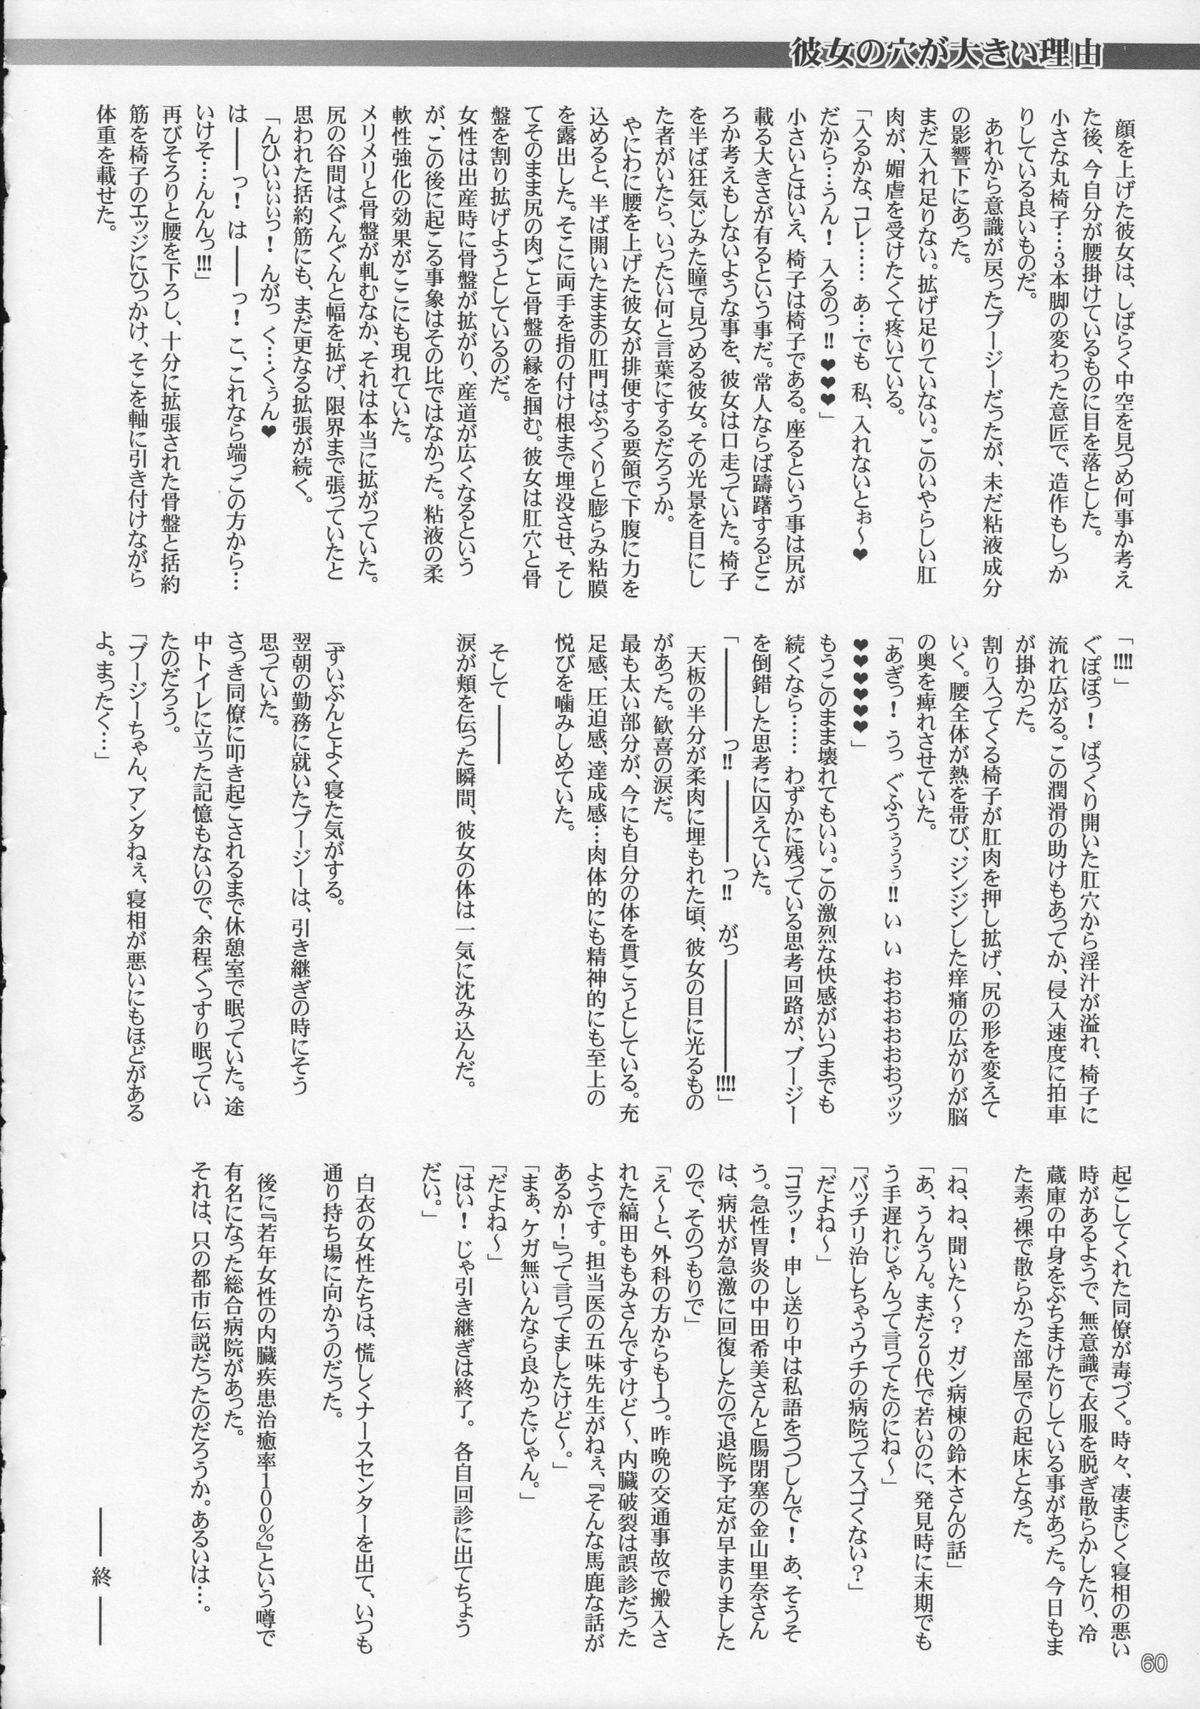 彼女の穴が大きい理由
　顔を上げた彼女は、しばらく中空を見つめ何事か考え
た後、今自分が腰掛けているものに目を落とした。
小さな丸椅子…３本脚の変わった意匠で、造作もしっか
りしている良いものだ。
　あれから意識が戻ったブージーだったが、未だ粘液成分
の影響下にあった。
まだ入れ足りない。拡げ足りていない。このいやらしい肛
肉が、媚虐を受けたくて疼いている。
「入るかな、コレ…… あ…でも 私、入れないとぉ～❤
だから…うん！ 入るのっ!!❤❤❤」
小さいとはいえ、椅子は椅子である。座るという事は尻が
載る大きさが有るという事だ。常人ならば躊躇するどこ
ろか考えもしないような事を、彼女は口走っていた。椅子
を半ば狂気じみた瞳で見つめる彼女。その光景を目にし
た者がいたら、いったい何と言葉にするだろうか。
　やにわに腰を上げた彼女が排便する要領で下腹に力を
込めると、半ば開いたままの肛門はぷっくりと膨らみ粘膜
を露出した。そこに両手を指の付け根まで埋没させ、そし
てそのまま尻の肉ごと骨盤の縁を掴む。彼女は肛穴と骨
盤を割り拡げようとしているのだ。
女性は出産時に骨盤が拡がり、産道が広くなるという
が、この後に起こる事象はその比ではなかった。粘液の柔
軟性強化の効果がここにも現れていた。
メリメリと骨盤が軋むなか、それは本当に拡がっていた。
尻の谷間はぐんぐんと幅を拡げ、限界まで張っていたと
思われた括約筋にも、まだ更なる拡張が続く。
「んひぃいぃいっ！ んがっ く…くぅん❤
は――っ！ は――っ！ こ、これなら端っこの方から…
いけそ…んんんっ!!!」
再びそろりと腰を下ろし、十分に拡張された骨盤と括約
筋を椅子のエッジにひっかけ、そこを軸に引き付けながら
体重を載せた。
「!!!!」
ぐぽぽっ！ ぱっくり開いた肛穴から淫汁が溢れ、椅子に
流れ広がる。この潤滑の助けもあってか、侵入速度に拍車
が掛かった。
割り入ってくる椅子が肛肉を押し拡げ、尻の形を変えて
いく。腰全体が熱を帯び、ジンジンした痒痛の広がりが脳
の奥を痺れさせていた。
「あぎっ！ うっ ぐふうぅぅぅ!! い い おおおおおおつッッ
❤❤❤❤❤」
もうこのまま壊れてもいい。この激烈な快感がいつまでも
続くなら…… わずかに残っている思考回路が、ブージー
を倒錯した思考に囚えていた。
「――――っ!! ――――っ!! がっ――――――!!!!」
　天板の半分が柔肉に埋もれた頃、彼女の目に光るもの
があった。歓喜の涙だ。
最も太い部分が、今にも自分の体を貫こうとしている。充
足感、圧迫感、達成感…肉体的にも精神的にも至上の
悦びを噛みしめていた。
そして――――
涙が頬を伝った瞬間、彼女の体は一気に沈み込んだ。
『ずいぶんとよく寝た気がする。
翌朝の勤務に就いたブージーは、引き継ぎの時にそう
思っていた。
さっき同僚に叩き起こされるまで休憩室で眠っていた。途
中トイレに立った記憶もないので、余程ぐっすり眠ってい
たのだろう。
「ブージーちゃん、アンタねぇ、寝相が悪いにもほどがある
よ。まったく…」
起こしてくれた同僚が毒づく。時々、凄まじく寝相の悪い
時があるようで、無意識で衣服を脱ぎ散らかしたり、冷
蔵庫の中身をぶちまけたりしている事があった。今日もま
た素っ裸で散らかった部屋での起床となった。
「ね、ね、聞いた～？ ガン病棟の鈴木さんの話」
「あ、うんうん。まだ２０代で若いのに、発見時に末期でも
う手遅れじゃんって言ってたのにね～」
「バッチリ治しちゃうウチの病院ってスゴくない？」
「だよね～」
「コラッ！ 申し送り中は私語をつつしんで！ あ、そうそ
う。急性胃炎の中田希美さんと腸閉塞の金山里奈さん
は、病状が急激に回復したので退院予定が早まりました
ので、そのつもりで」
「え～と、外科の方からも１つ。昨晩の交通事故で搬入さ
れた縞田ももみさんですけど～、内臓破裂は誤診だった
ようです。担当医の五味先生がねぇ、『そんな馬鹿な話が
あるか！』って言ってましたけど～。」
「まぁ、ケガ無いんなら良かったじゃん。」
「だよね～」
「はい！ じゃ引き継ぎは終了。 各自回診に出てちょう
だい。」
　白衣の女性たちは、慌しくナースセンターを出て、いつも
通り持ち場に向かうのだった。
　後に『若年女性の内臓疾患治癒率１００％』という噂で
有名になった総合病院があった。
それは、只の都市伝説だったのだろうか。あるいは…。
―― 終 ――
60